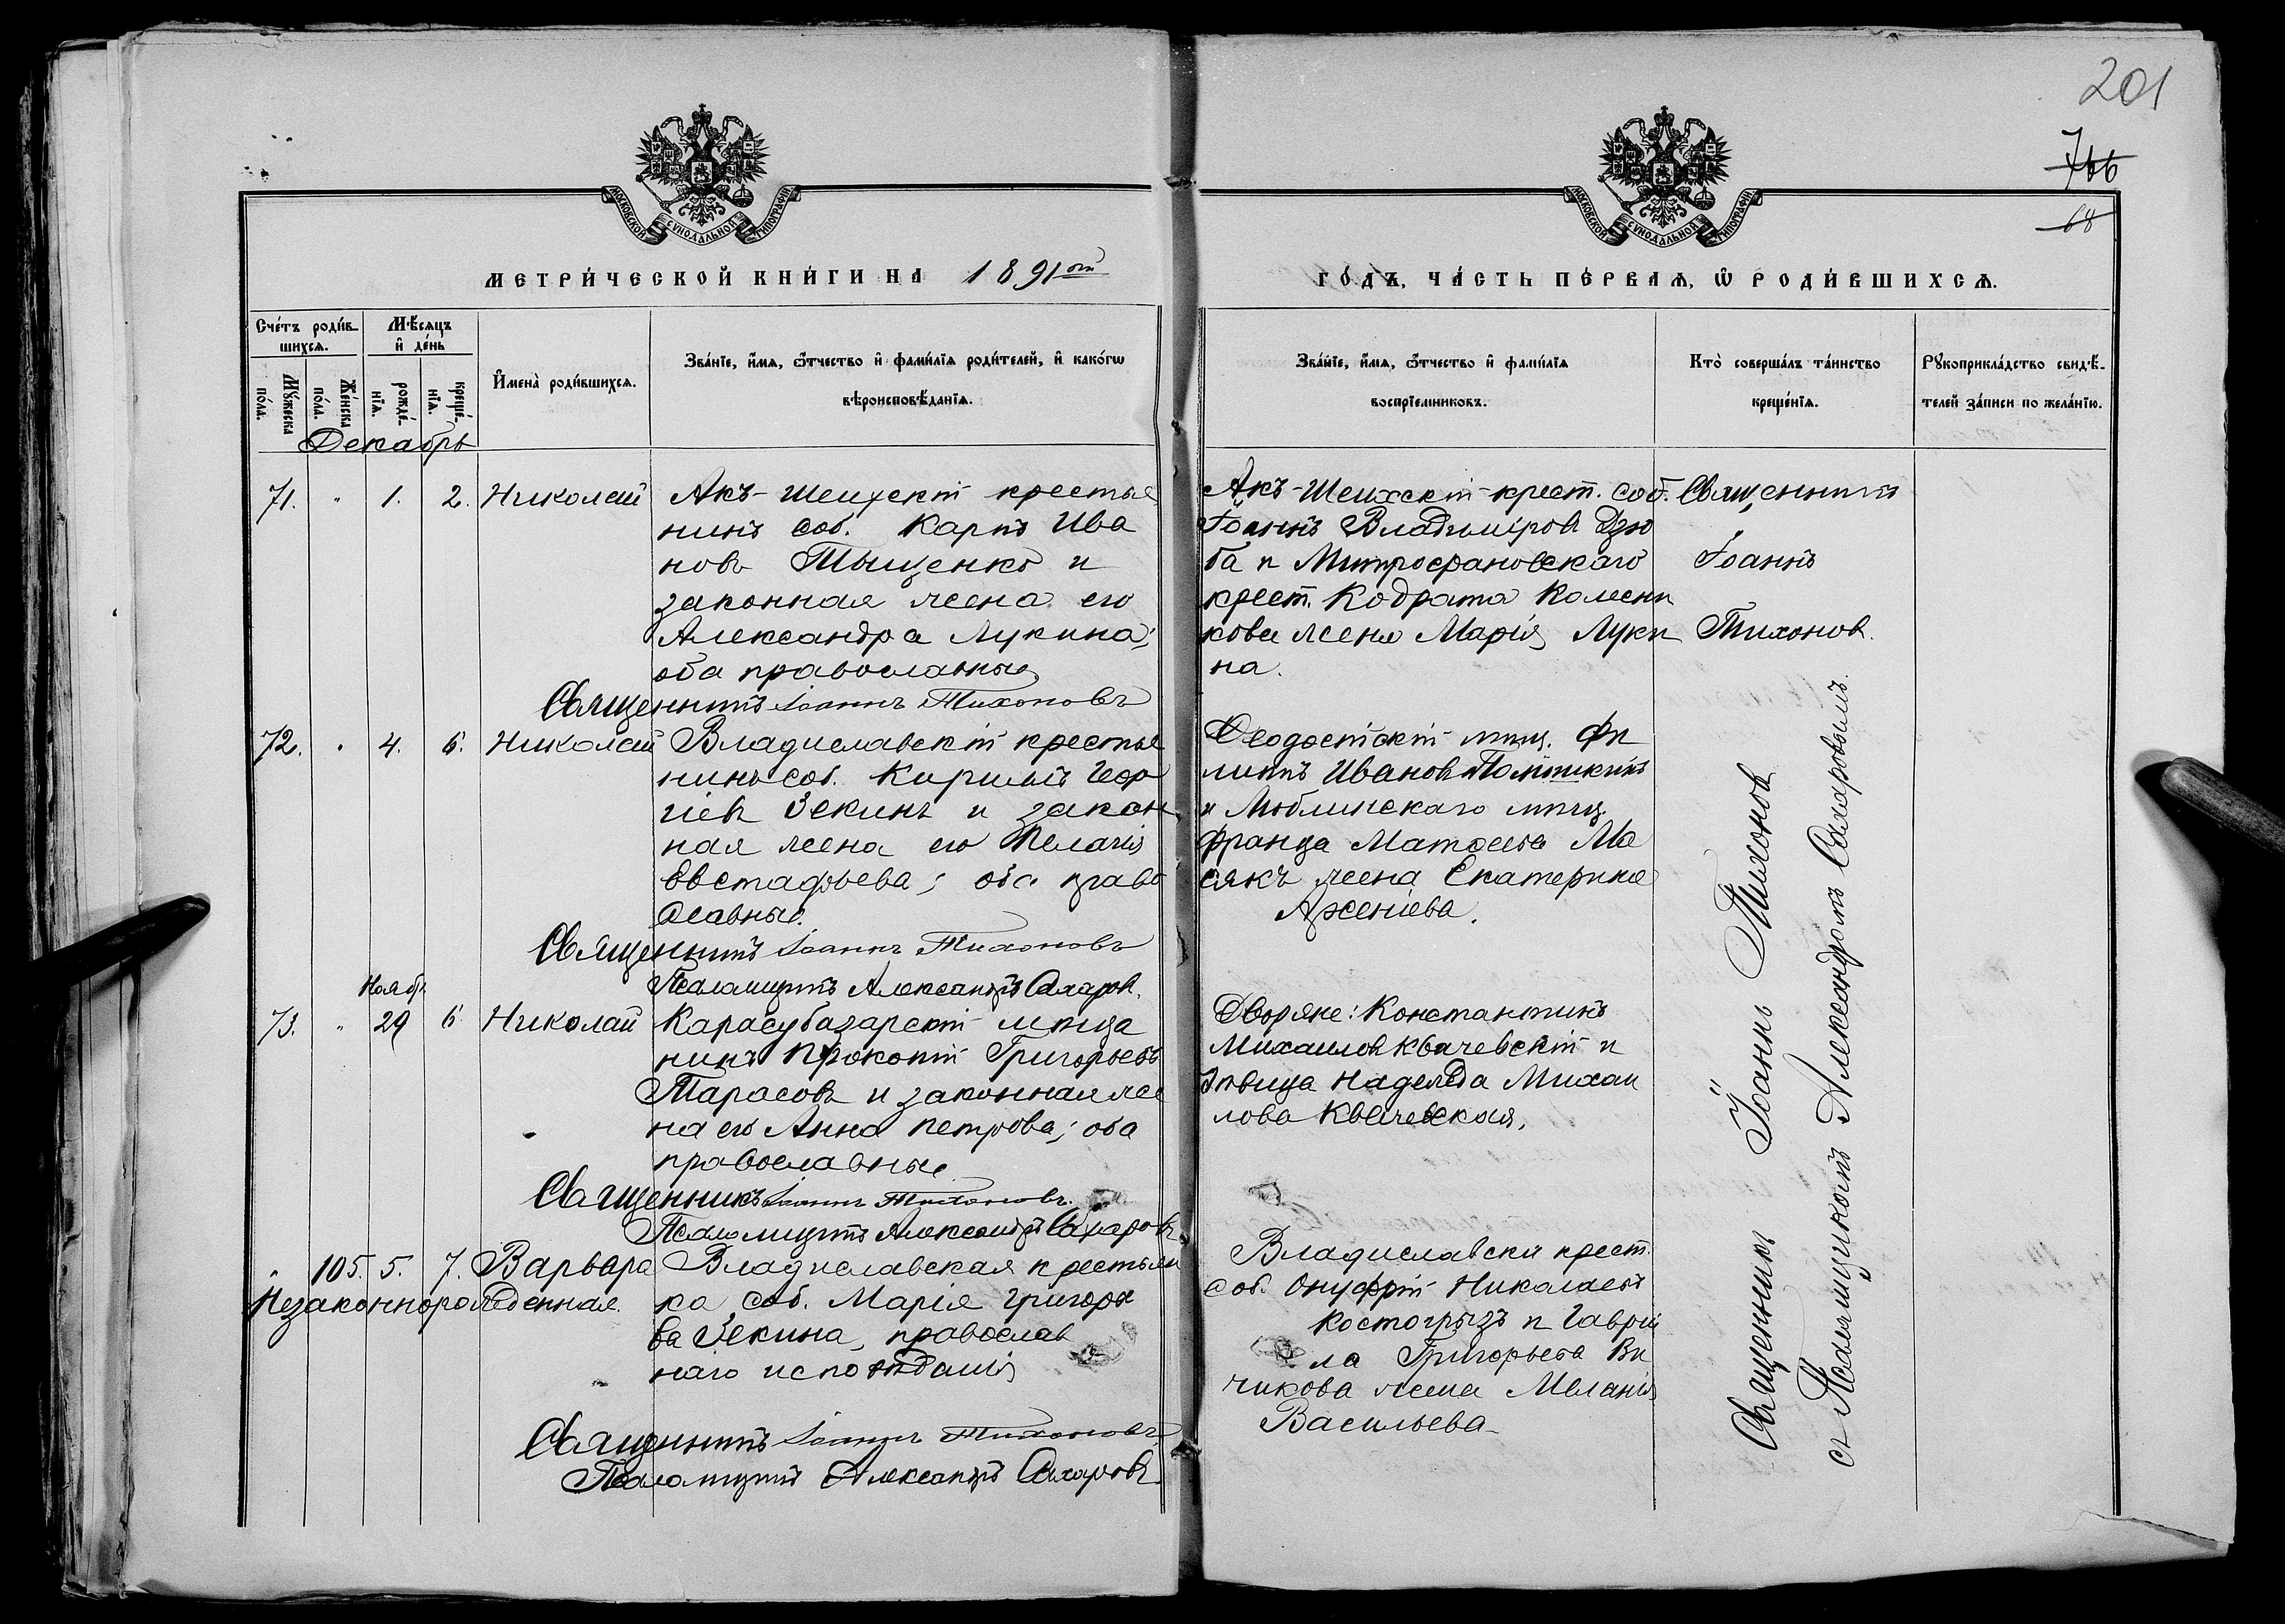 201
766
68
МОСКОВСКОЙ СУНОДАЛЬНОЙ ТИПОГРАФІИ
МОСКОВСКОЙ СУНОДАЛЬНОЙ ТИПОГРАФІИ
МЕТРИ́ЧЕСКОЙ КНИ́ГИ НА 1891ый
ГО́ДЪ, ЧА́СТЬ ПЕ́РВАѦ, Ѡ҆ РОДИ́ВШИХСѦ.
Сче́тъ роди́в-
шихсѧ.
Мѣ́сѧцъ
и҆ де́нь
Мꙋ́жеска по́ла.
Же́нска по́ла.
рожде́-нїѧ.
креще́-нїѧ.
И҆мена̀ роди́вшихсѧ.
Зва́нїе, и҆́мѧ, ѻ҆́тчество и҆ фами́лїѧ роди́телей, и҆ како́гѡ
вѣроисповѣ́данїѧ.
Зва́нїе, и҆́мѧ, ѻ҆́тчество и҆ фами́лїѧ
воспрїе́мниковъ.
Кто̀ соверша́лъ та́инство
креще́нїѧ.
Рꙋкоприкла́дство свидѣ́-
телей за́писи по жела́нїю.
Декабрь
71. " 1. 2. Николай Акъ-Шеихскій крестья
нинъ соб. Карпъ Ива
новъ Тыщенко и
законная жена его
Александра Лукина;
оба православные
Священникъ Іоаннъ Тихоновъ
Акъ-Шеихскій крест. соб.
Іоаннъ Владиміровъ Дзю
ба и Митрофановскаго
крест. Кодрата Колесни
кова жена Марія Луки
на.
Священникъ
Іоаннъ
Тихонов.
72. " 4. 6. Николай Владиславскій крестья
нинъ соб. Кирилъ Геор
гіевъ Зекинъ и закон
ная жена его Пелагія
Евстафьева; оба право
славные.
Священникъ Іоаннъ Тихоновъ
Псаломщикъ Александръ Сахаров.
Ѳеодосійскій мѣщ. Фи
липпъ Иванов
и Люблинскаго мѣщ.
Франца Матвеева Ма
сякъ жена Екатерина
Арсеніева.
Ноябр
73. " 29 6 Николай Карасубазарскій мѣща
нинъ Прокопій Григорьевъ
Тарасовъ и законная же
на его Анна Петрова; оба
православные
Священникъ Іоаннъ Тихоновъ.
Псаломщикъ Александръ Сахаровъ
Дворяне: Константинъ
Михаилов Квачевскій и
дѣвица Надежда Михаи
лова Квачевская.
" 105. 5. 7. Варвара Владиславская крестьян
Незаконнорожденная. ка соб. Марія Григорье
ва Зекина, православ
наго исповѣданія
Священникъ Іоаннъ Тихоновъ
Псаломщикъ Александръ Сахаровъ
Владиславскій крест.
соб. Онуфрій Николаевъ
Костогрызъ и Гаврии
ла Григорьева Би
чикова жена Меланія
Васильева
Священникъ Іоаннъ Тихонов
съ Псаломщикомъ Александромъ Сахаровымъ.